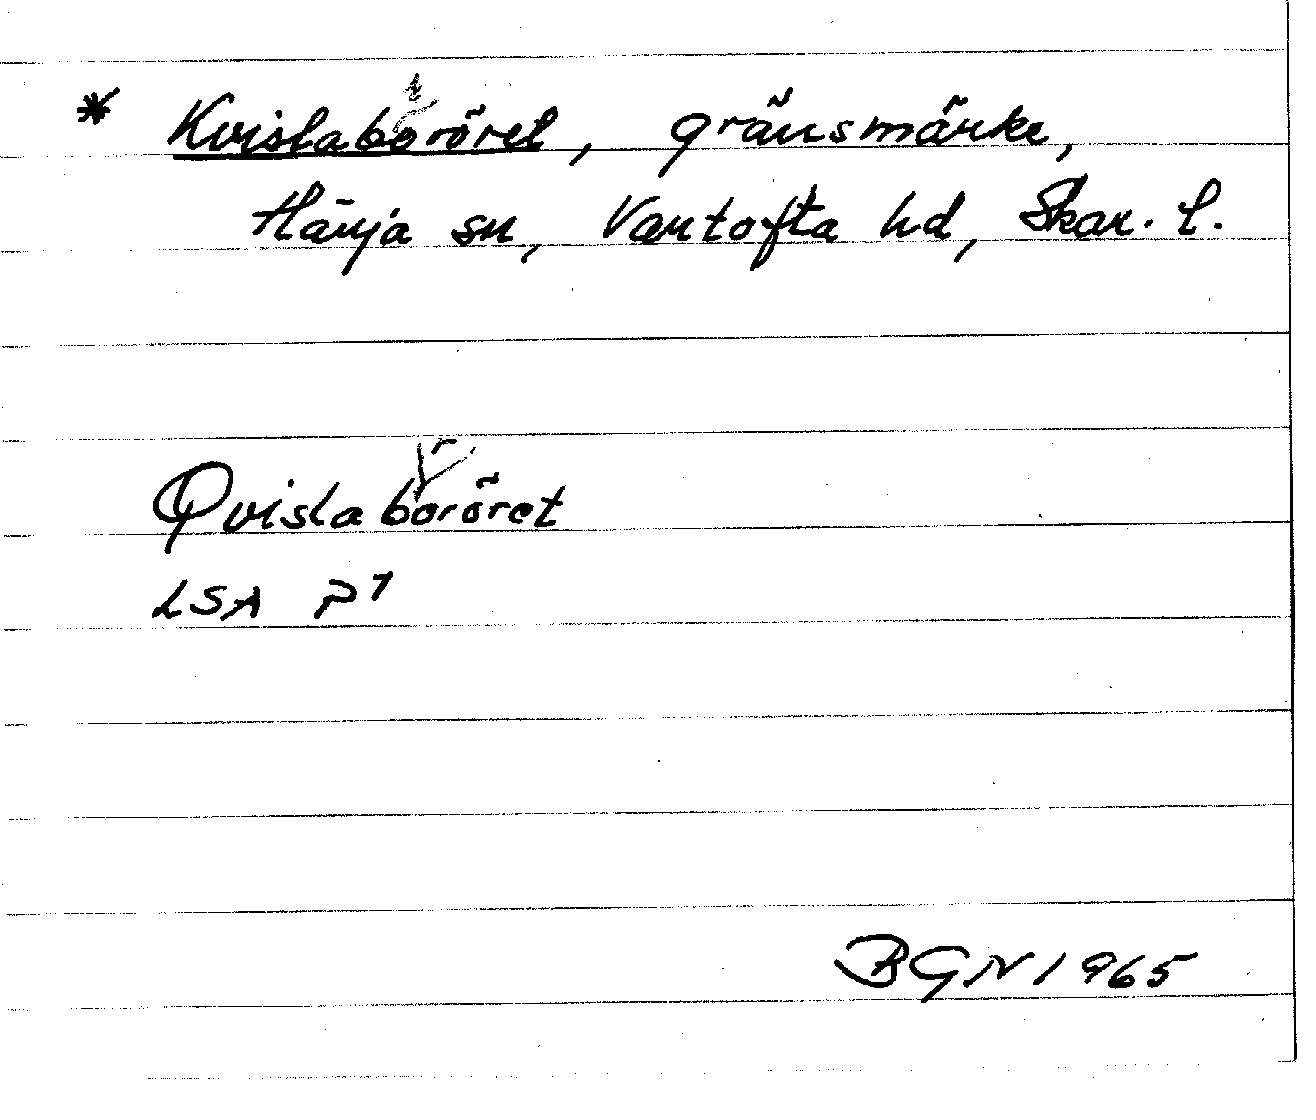 * Kvislaboröret, gränsmärke,
Härja sn, Vartofta hd, Skar. l.
Qvislaboröret
LSA P1
BGN 1965